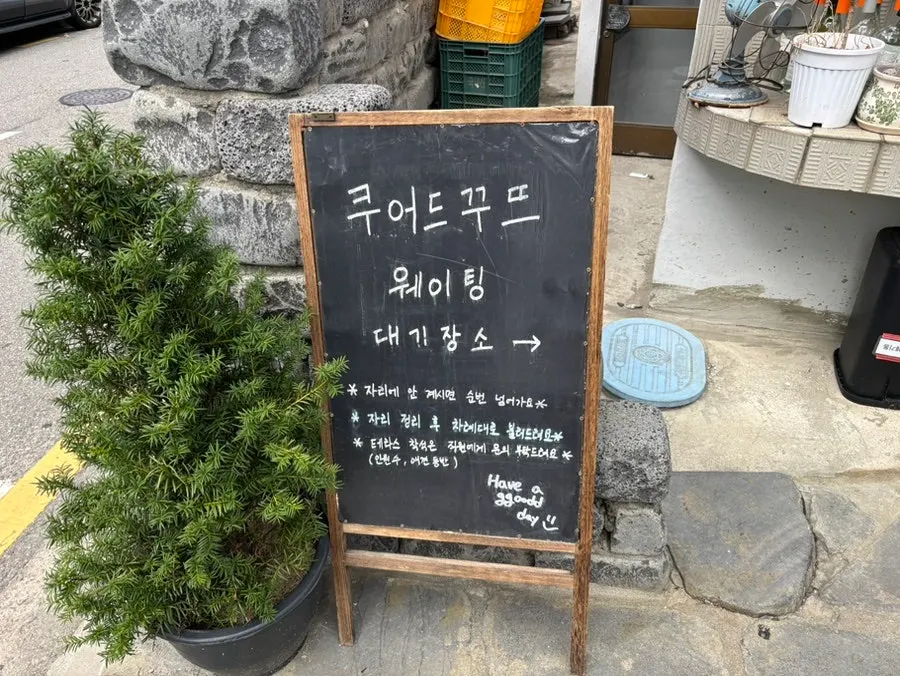 쿠어드꾸뜨
웨이팅
대기장소 →
* 자리에 안 계시면 순번 넘어가요 *
* 자리 정리 후 차례대로 불러드려요 *
* 테라스 착석은 직원에게 문의 부탁드려요 *
(인원수, 애견동반)
Have a
ggoodd
day